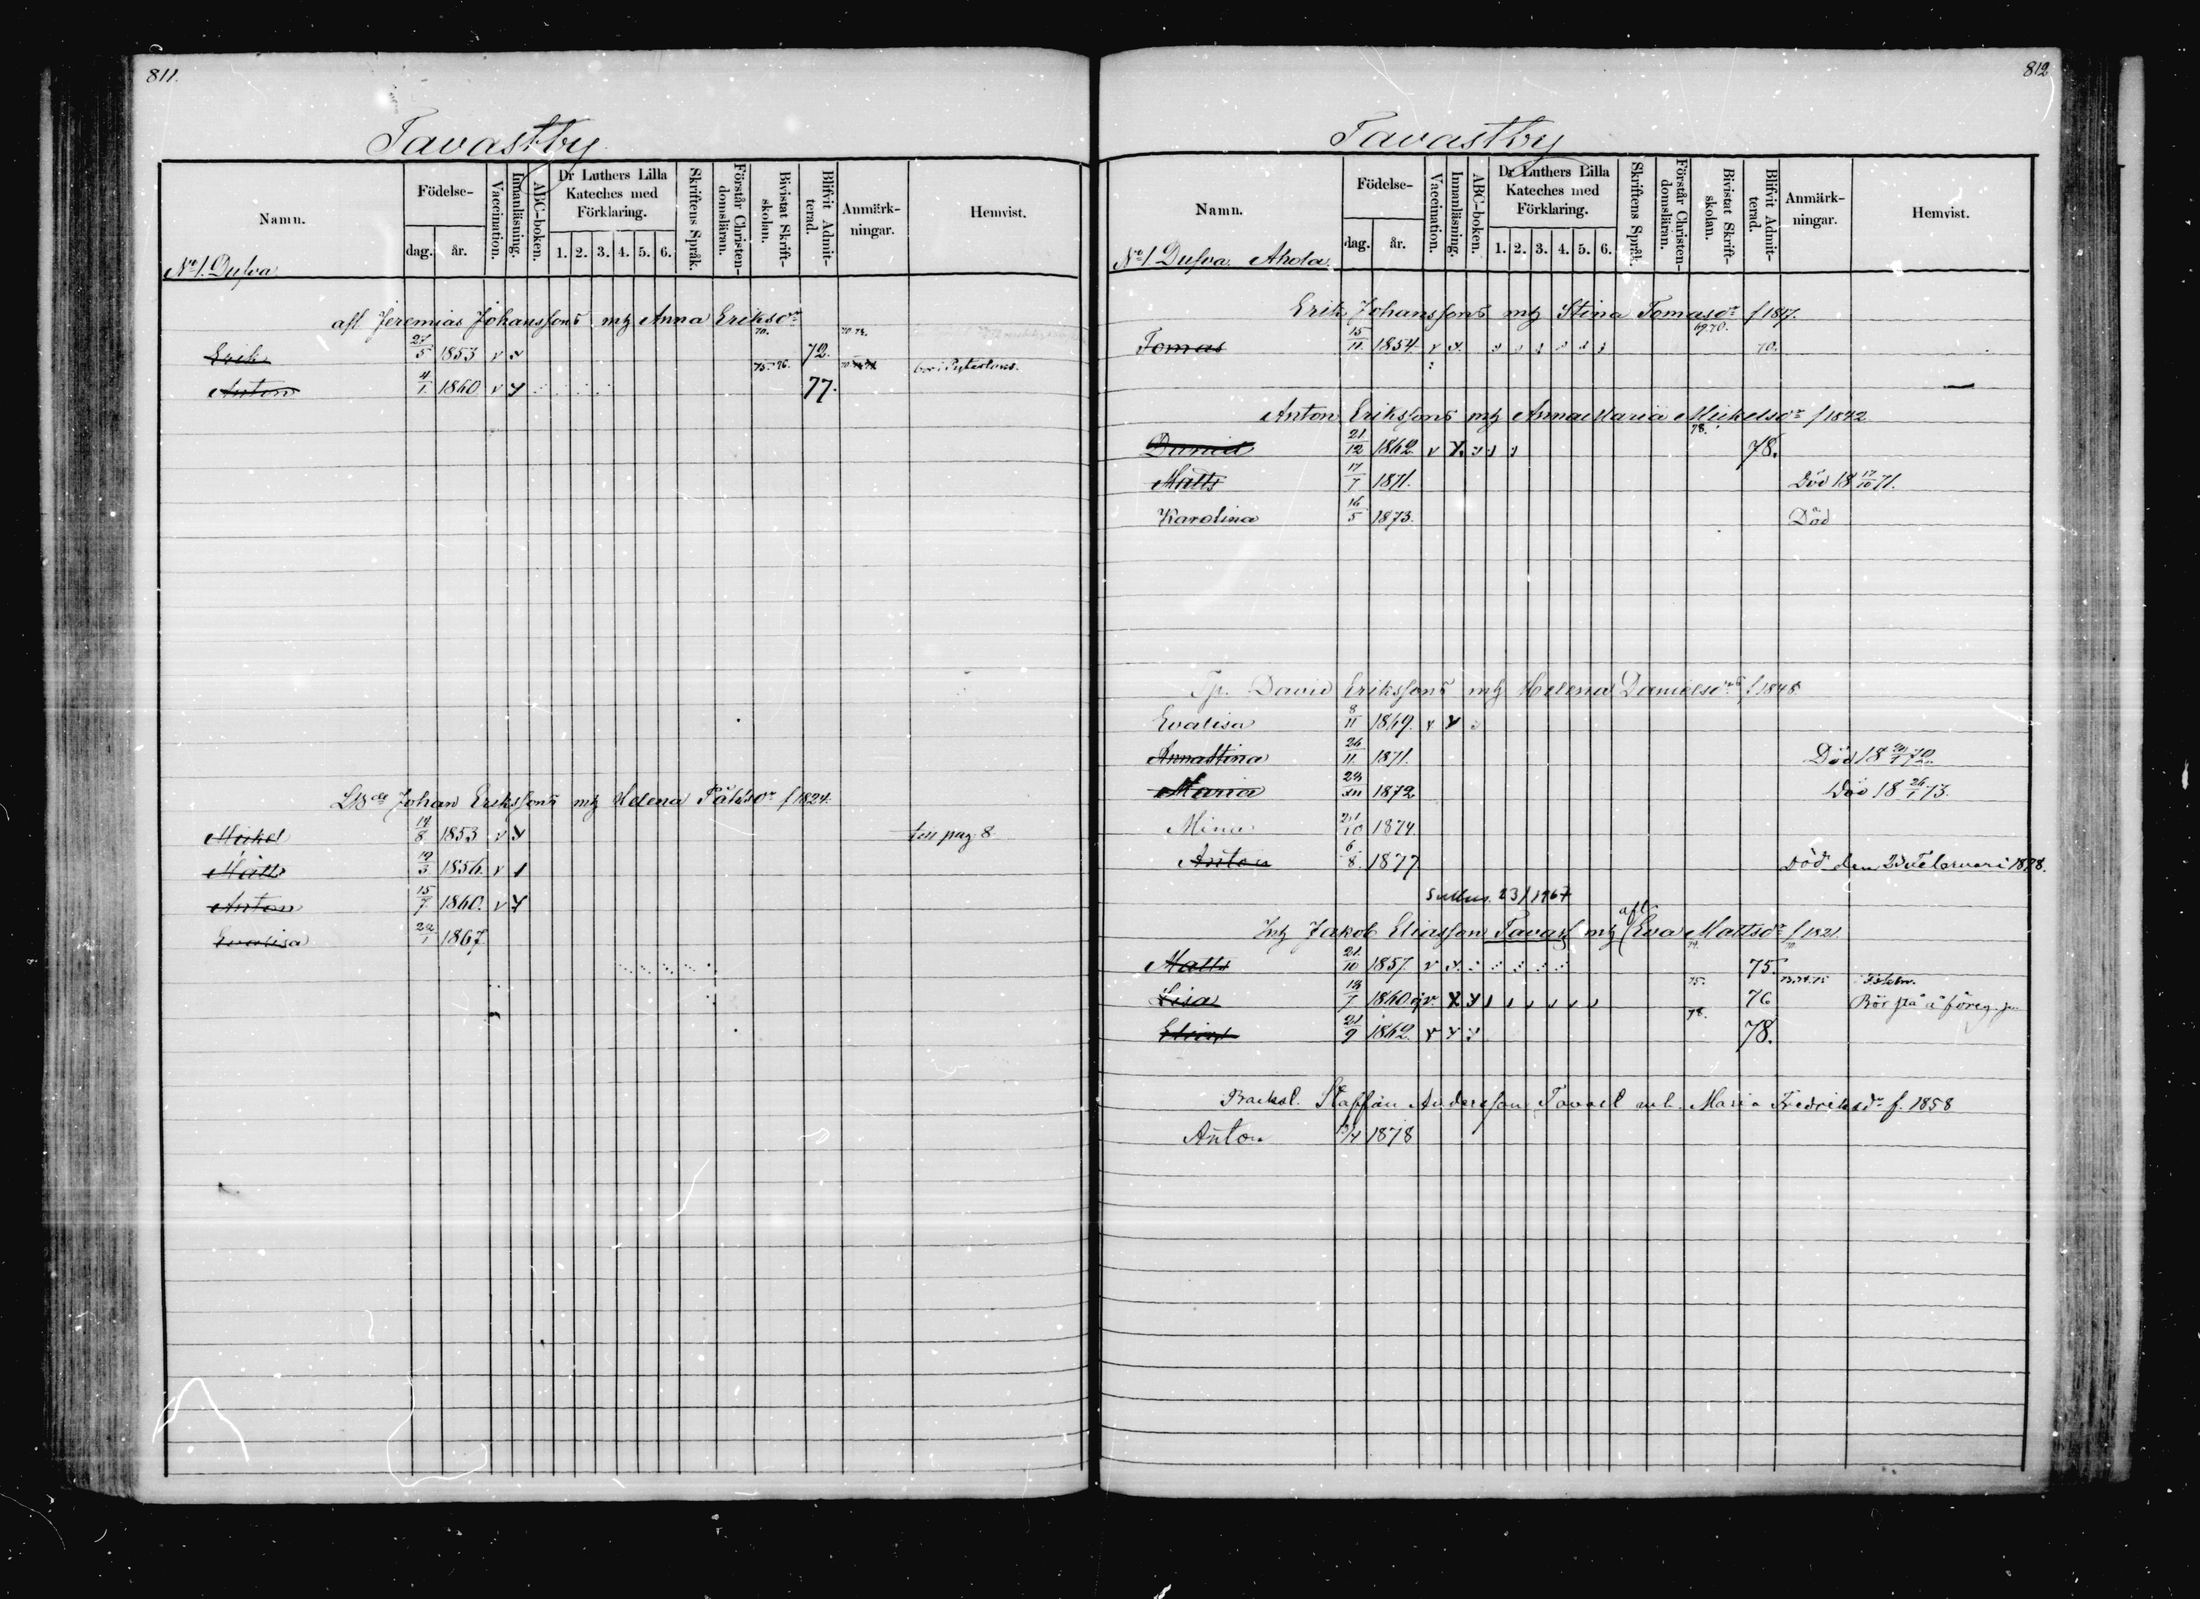 811.
Tavastby
Namn. Födelse- dag. år. Vaccination. Innanläsning. ABC-boken. Dr Luthers Lilla Kateches med Förklaring. 1. 2. 3. 4. 5. 6. Skriftens Språk. Förstår Christendomsläran. Bivistat Skriftskolan. Blifvit Admitterad. Anmärkningar. Hemvist.
No 1. Dufva
afl Jeremias Johanssons mh Anna Eriksdr
Erik 27/5 1853 v 70. 72.
Anton 4/1 1860 v 75. 76. 77.
Johan Erikssons mh Helena f 1824.
Mickel 14/8 1853 v pag. 8
Matts 19/3 1856. v
Anton 15/7 1860. v
Evalisa 22/1 1867
812
Tavastby
Namn. Födelse- dag. år. Vaccination. Innanläsning. ABC-boken. Dr Luthers Lilla Kateches med Förklaring. 1. 2. 3. 4. 5. 6. Skriftens Språk. Förstår Christendomsläran. Bivistat Skriftskolan. Blifvit Admitterad. Anmärkningar. Hemvist.
No 1 Dufva. Ahola.
Erik Johanssons mh Stina Tomasdr f 1817.
Tomas 15/11 1854. v 69.70. 70.
Anton Erikssons mh Annamaria Mickelsdr f 1842
Daniel 21/12 1862. v 78. 78.
Matts 17/7 1871. Död 18 17/10 71.
Karolina 16/5 1873. Död
David Erikssons mh Helena Danielsdr f 1848
Evalisa 8/11 1869. v
Annastina 26/11 1871. Död 18 72.
Maria 1872 Död 18 26/1 73.
Mina 21/10 1874.
Anton 6/8 1877 Död den 23 Februari 1878.
23/1967
Inh Jakob Eliasson Tavast mh afl Eva Mattsdr f 1821.
Matts 21/10 1857. v 75.
Lisa 1860 v. 75. 76 73.74.75 Bör stå å föreg.
Elias 21/9 1862. v 78. 78.
Backst. Staffan Andersson Tavast mh. Maria Fredriksdr f. 1858
Anton 1878